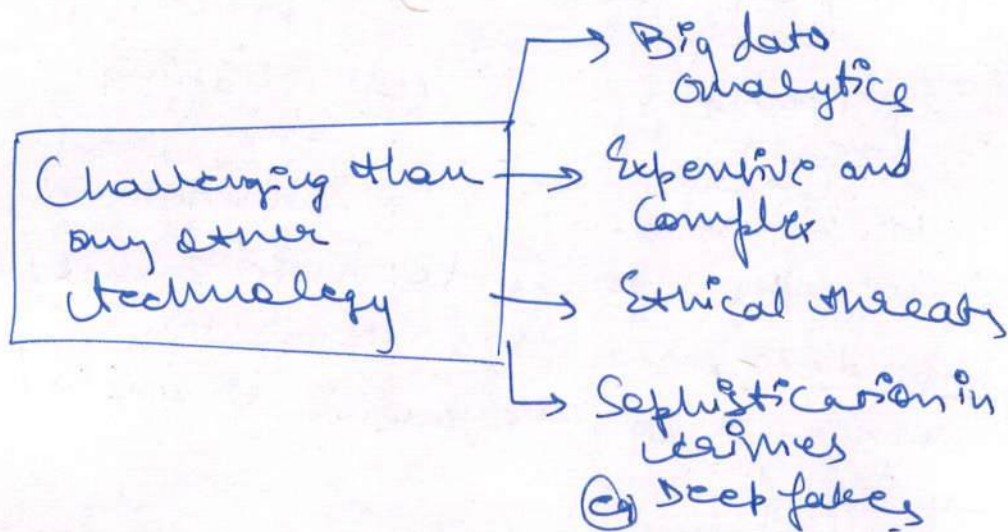 Challenging than
any other
technology
Big data
analytics
Expensive and
Complex
Ethical threats
Sophistication in
crimes
eg Deep fakes